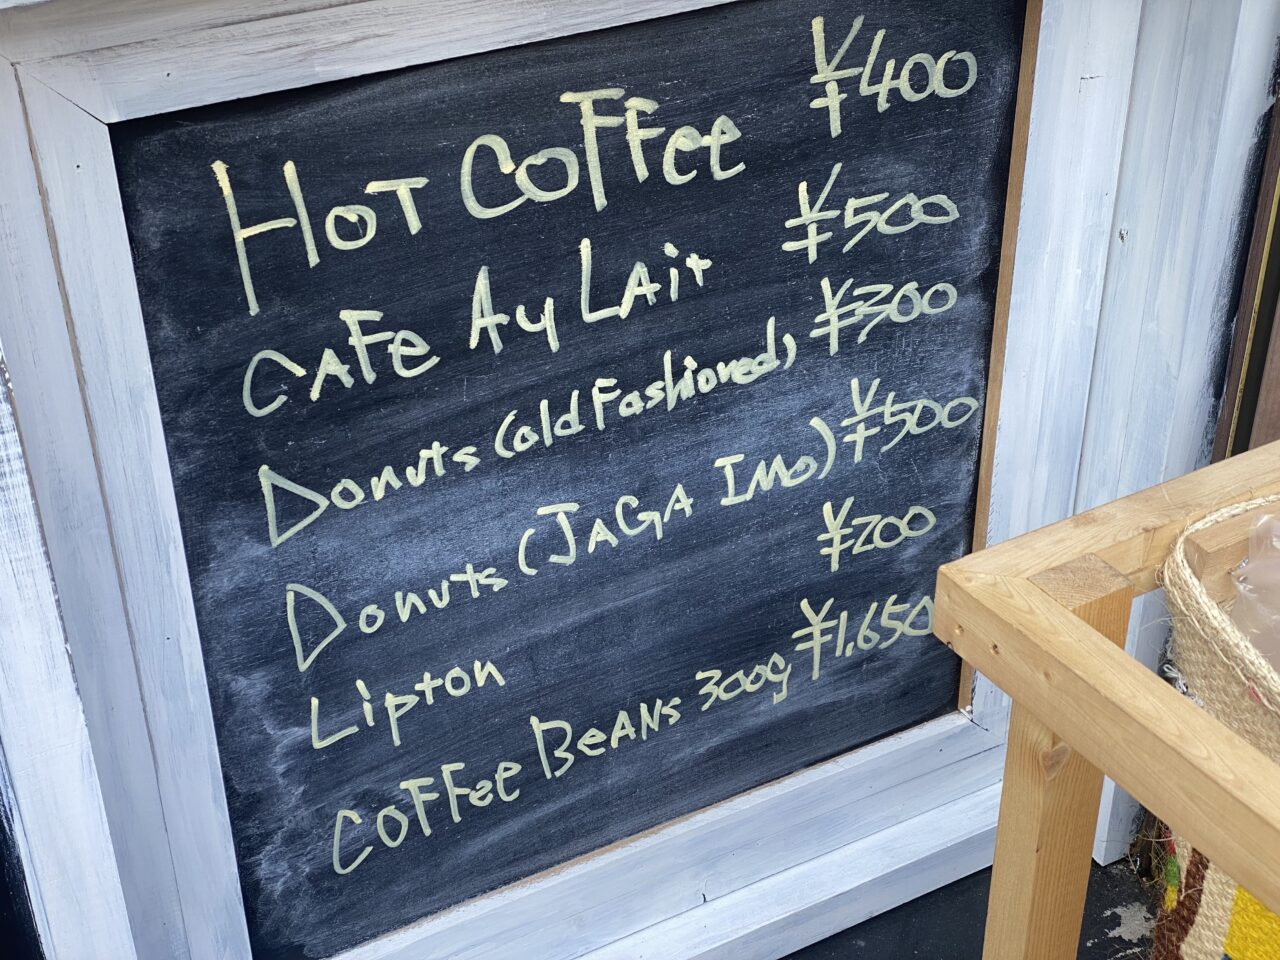 HOT COFFee ¥400
CAFe Ay LAit ¥500
Donuts (old Fashioned) ¥300
Donuts (JAGA IMO) ¥500
Lipton ¥200
COFFee BeANs 300g ¥1,650